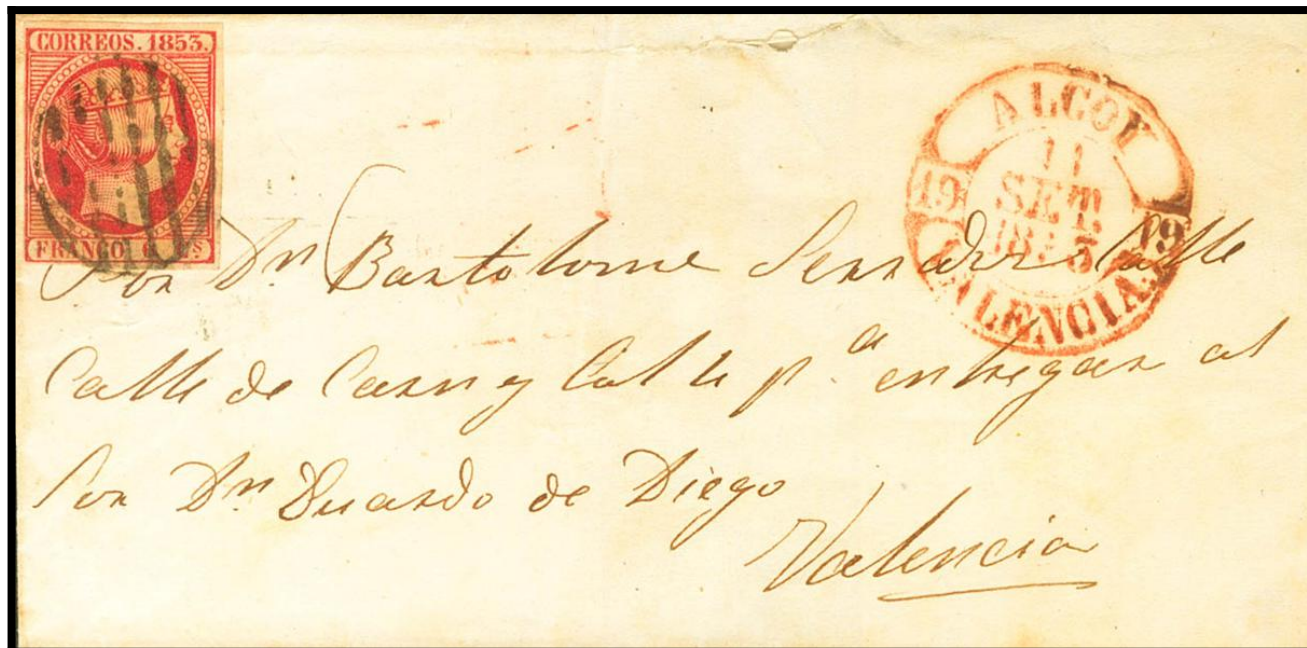 CORREOS. 1853.
FRANCO 6 Cs
ALCOY
11
SET.
19 19
VALENCIA.
Sor Dn Bartolome Calle
Calle de pa entregar al
Sor Dn Duardo de Diego
Valencia